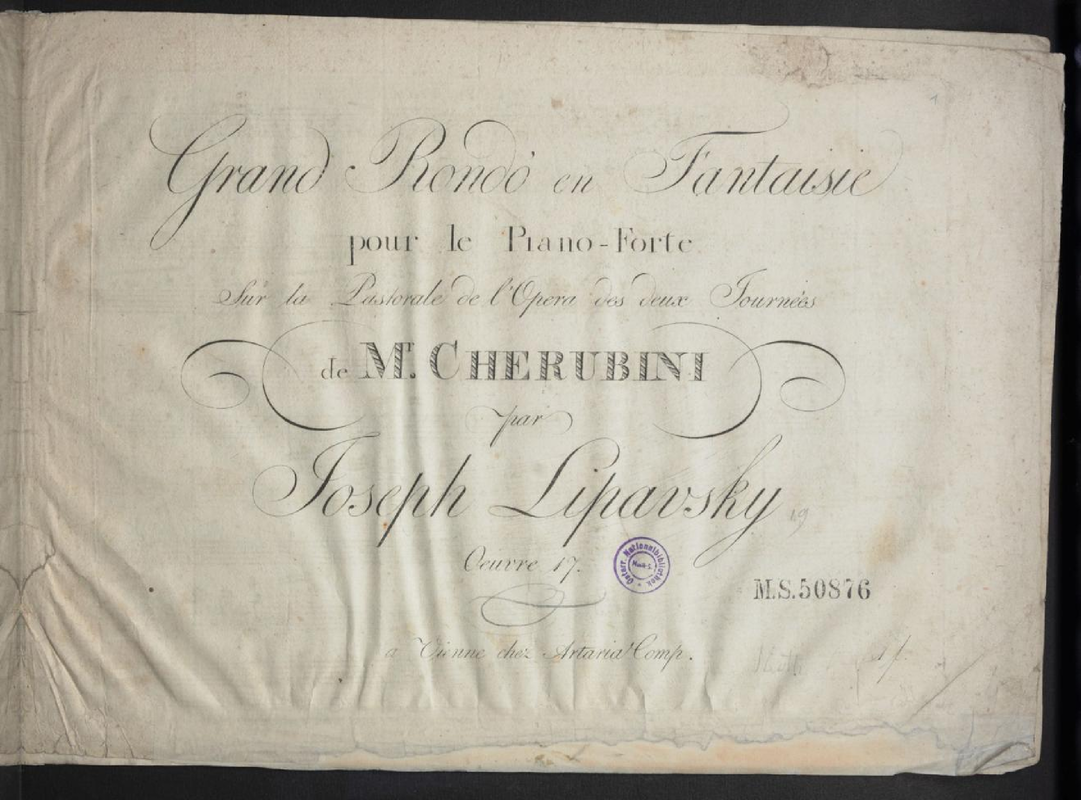 Grand Rondò en Fantaisie
pour le Piano-Forte
Sur la Pastorale de l'Opera des deux Journées
de Mr. CHERUBINI
par
Joseph Lipavsky
19
Oeuvre 17.
Österr. Nationalbibliothek
M.S.50876
a Vienne chez Artaria Comp.